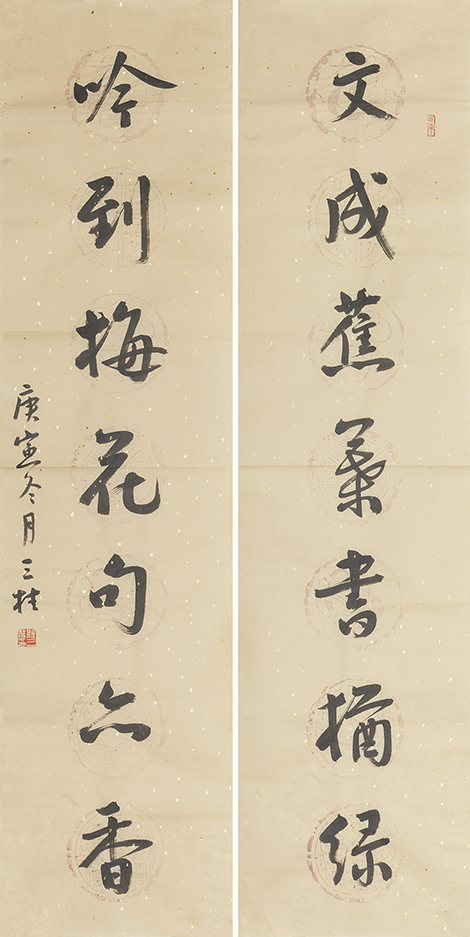 文成蕉葉書猶绿
吟到梅花句亦香
庚寅冬月三桂